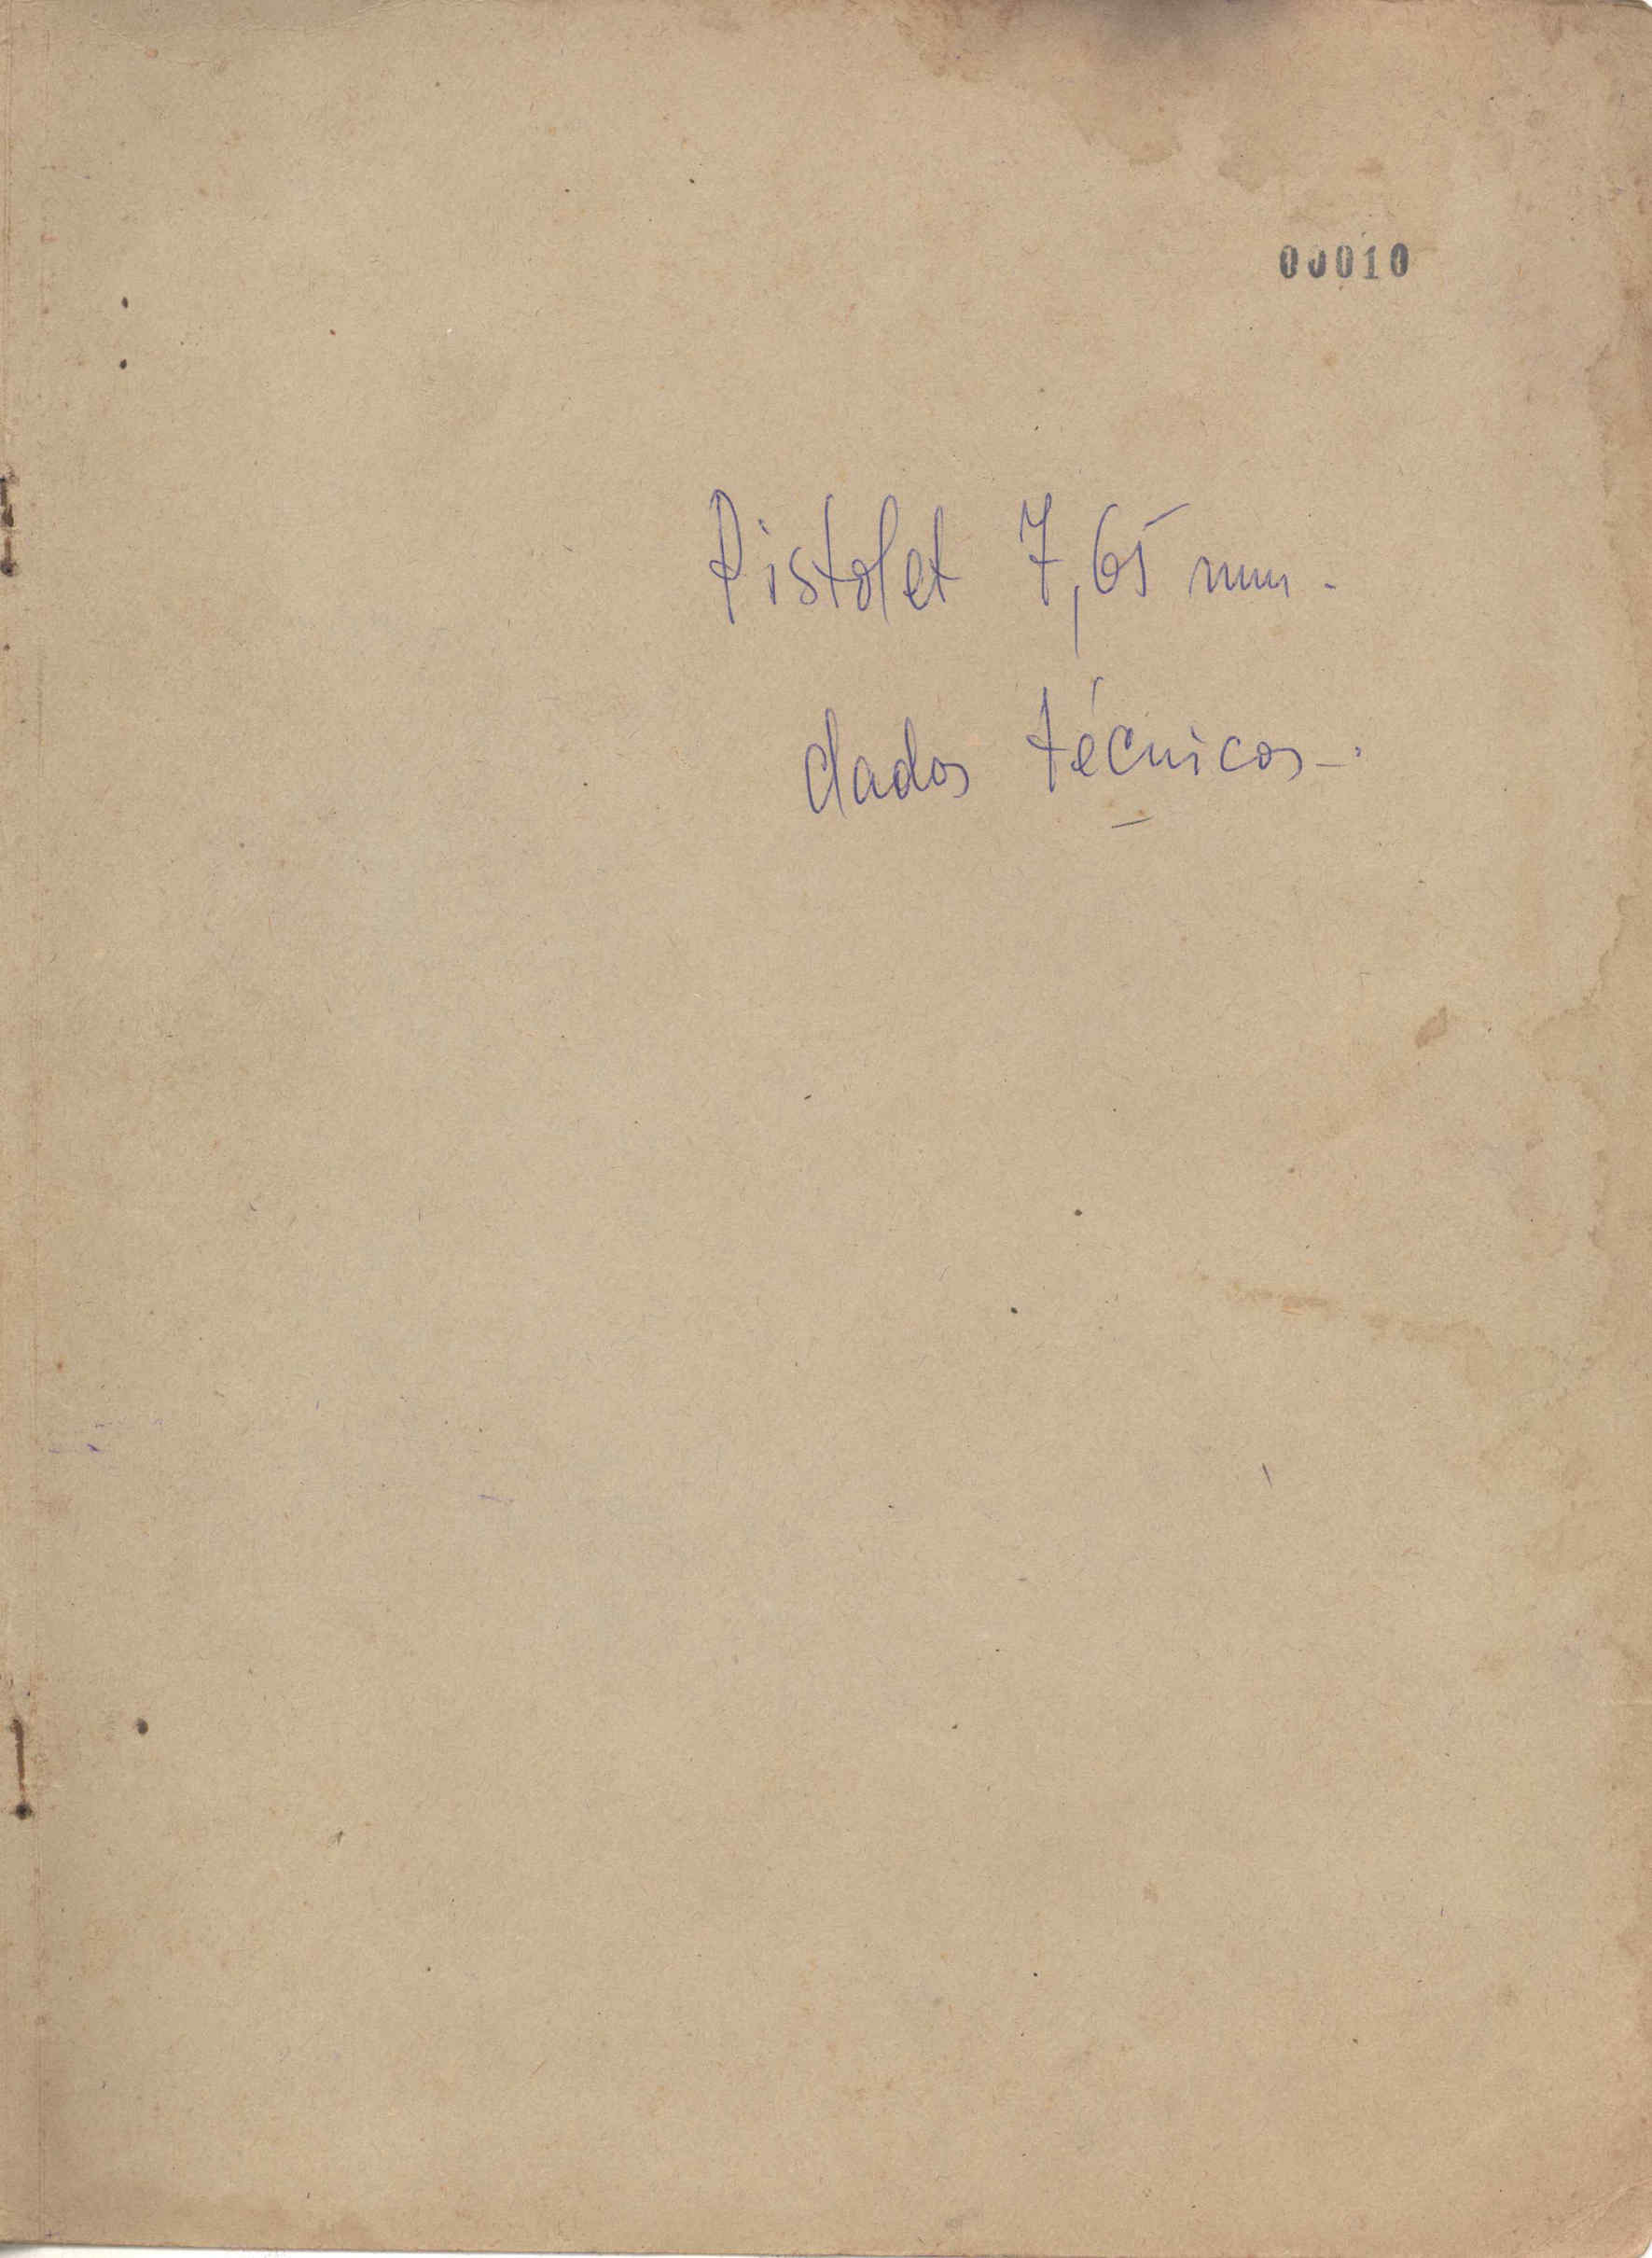 00010
Pistolet 7,65 mm.
dados técnicos.